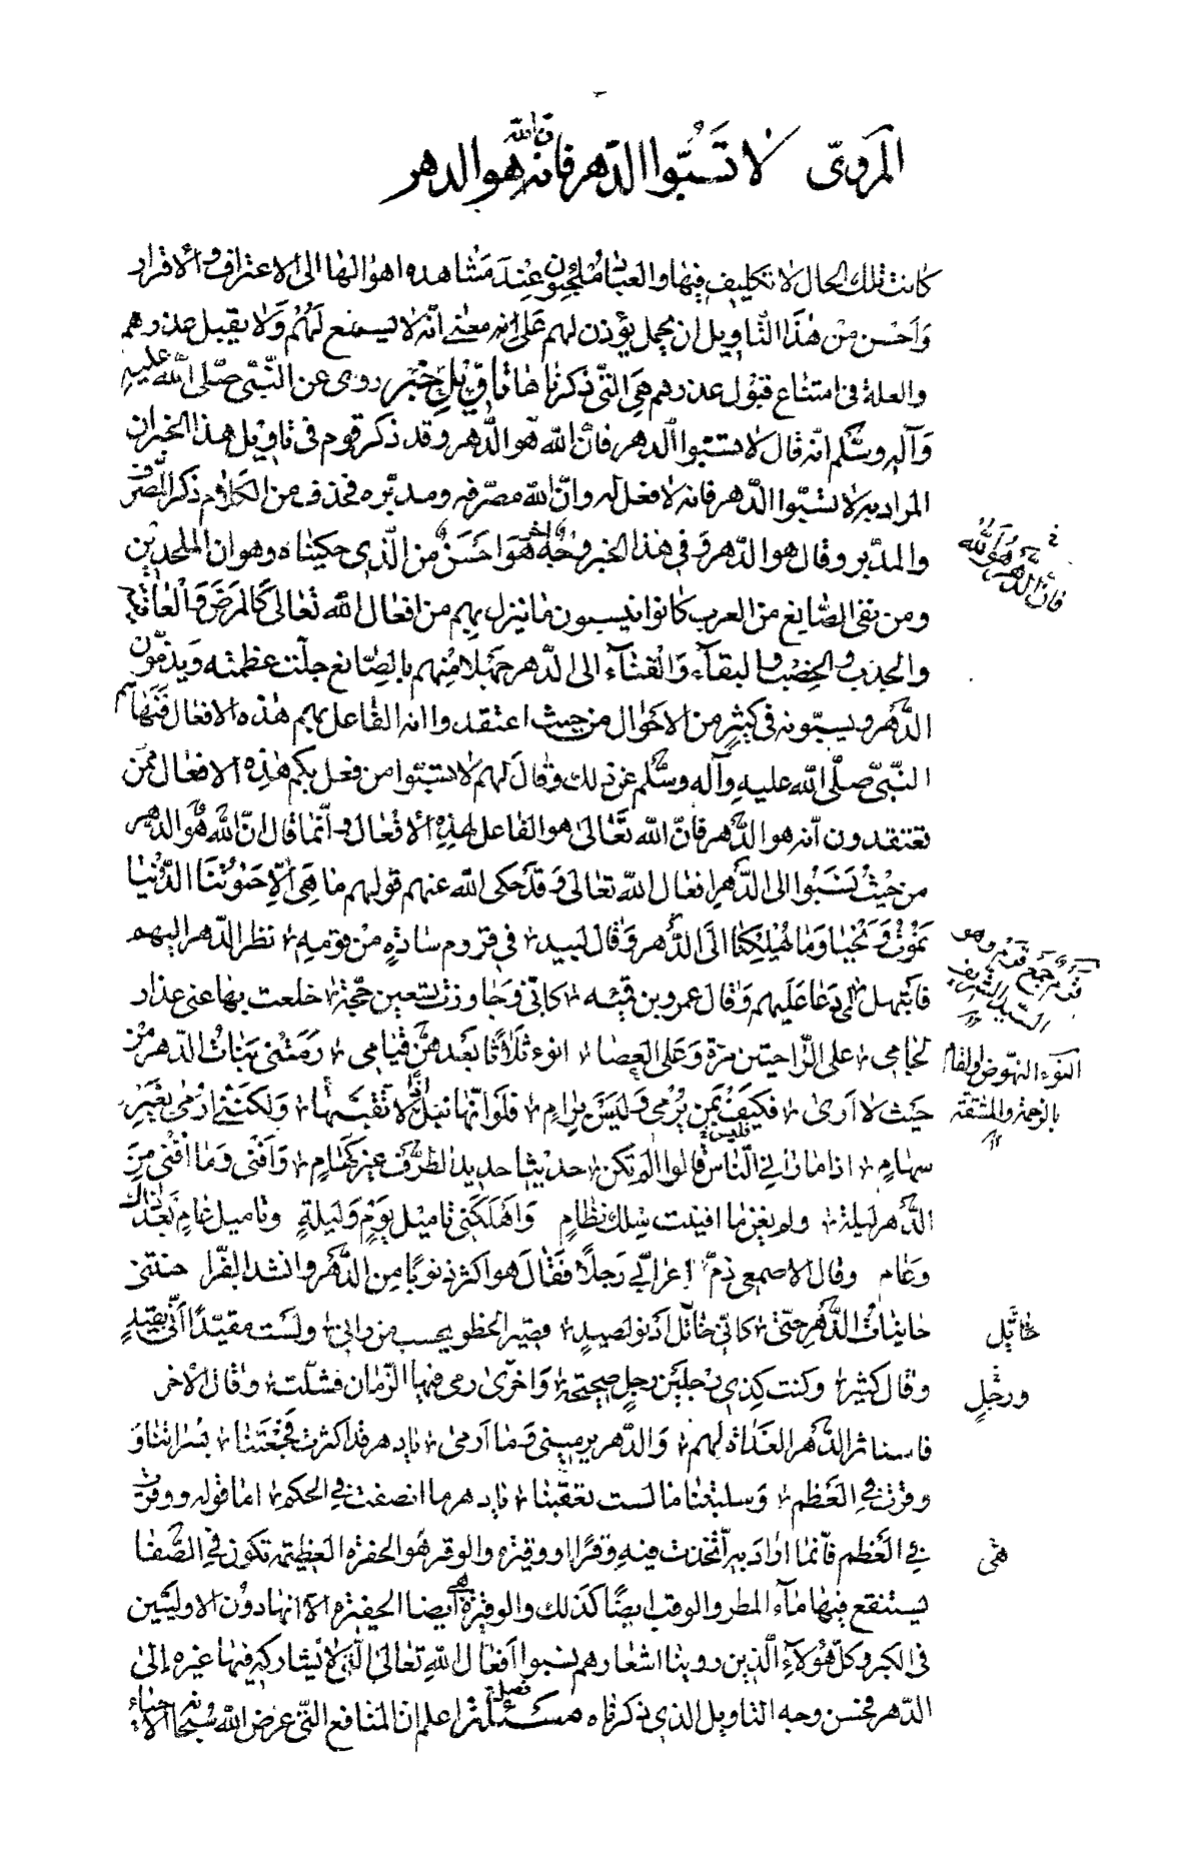 المروىّ لا تَسُبّوا الدّهر فانّه هو الدهر
فان الله
كانت تلك الحال لا تكليف فيها والعباد مُلجَئون عِندَ مَشاهده اهوالها الى الاعتراف والاقرار
وَاَحسَن مِن هٰذَا التّاويل ان يحمل يؤذن لهم عَلى انه معناه انّه لا يسمع لَهُمْ وَلا يقبل عذرهم
والعلة فى امتناع قبُول عذرهم هِىَ التّى ذكرناها تاويل خَبَر روى عن النّبىّ صلّى الله عليه
وَآله وسَلّم انّه قال لا تسبّوا الدهر فانّ الله هو الدّهر وقد ذكر قوم فى تاويل هذا الخبر ان
المراد به لا تسُبّوا الدّهر فانه لا فعل له وانّ الله مصرّفه ومدبّره فحذف من الكلام ذكر المصرّف
والمدبّر وقال هو الدّهر وَفى هٰذا الخبر وَجهٌ هُوَ احَسَنُ من الّذى حكيناه وهو ان الملحدين
ومن نفى الصّانع من العرب كانوا ينسبون ما ينزل بهم من افعال الله تعالى كَالمرَضَ وَالعافية
والجدب والخِصْب والبقآء وَالفنآء الى الدّهر جَهلا منهم بالصّانع جلّت عظمته وَيذمّون
الدَّهر ويسبّونه فى كثيرٍ من الاحوال من حيث اعتقدوا انه الفاعل بهم هٰذه الافعال فَنَهاهم
النّبىّ صلّى الله عليهِ وآله وسَلّم عن ذلك وقال لهم لا تسبّوا من فعل بكم هٰذِه الافعال ممّن
تعتقدون انّه هو الدّهر فانّ الله تَعَالى هو الفاعل لهٰذِه الافعال وَانّما قال انّ الله هُوَ الدّهر
من حَيثُ نَسَبُوا الى الدّهرِ افعال الله تعالى وَقَد حكى الله عنهم قولهم ما هِىَ اِلّا حَيٰوتنَا الدُّنيا
نَمُوتُ وَنَحْيا وَمَا يُهْلِكنا الّا الدّهر وَقال لبيد فى قروم سادةٍ مِنْ قومِه نظر الدّهر اليهم
فابتهل اى دَعا عَلَيهم وَقال عمرو بن قميئه كانّى وَجاوزت تسعين حجّة خلعت بها عنى عذار
لجامى على الرّاحتين مرّة وَعَلى العصا انوء ثلاثا بَعدهنّ قيامى رَمَتْنى بَنات الدّهر من
حَيث لا ارى فكَيفَ بمن يُرْمى وَلَيسَ بِرام فلَو انّها نبل اذًا لاتّقيتها وَلكنّنى ارمى بغير
سهام اذا ما رانى النّاس قالوا الم تكن حديثا حديد الطّرف غير كهام وَاَفنى وَما افنى من
الدّهر ليلة ولم يغن ما افنيت سلك نظام وَاَهلكنى تاميل يوم وليلةٍ وتاميل عام بَعد ذاك
وعام وقال الاصمعى ذمّ اعرابىّ رَجلاً فقَال هو اكثر ذنوبًا مِن الدّهر وانشد الفرّا حنتنى
حانيات الدّهر حتّى كانّى خاتل ادنو لصيدٍ قصير الخطو يحسب من رانى ولست مقيّدًا انّى بقيدٍ
وقال كثير وكنت كذى رجلَين رجلٍ صحيحة وَاخرى رمى فيها الزّمان فشلّت وقال الاخر
فاستاثر الدّهر الغَداة بهم وَالدّهر يرمينى وَما ارمى يا دهر قد اكثرت فجْعَتنا بسراتنا وَ
وقرت فى العَظم وَسلبتنا ما لست تعقبنا يا دهر ما انصفت فى الحكم اما قوله ووقرت
فى العَظم فانّما اراد به اتّخذت فيه وقرًا او وقيرة والوقر هو الحفرة العظيمة تكون فى الصّفا
يستنقع فيها مآء المطر والوقب ايضًا كذلك والوقيرة هى ايضا الحفيرة الّا انها دون الاوليّين
فى الكبر وكلّ هؤلاء الّذين روينا اشعارهم نسبوا اَفعال اللهِ تعالى التى لا يشاركه فيها غيره الى
الدّهر فحسن وجه التاويل الذى ذكرناه مسئلة اعلم ان المنافع التّى عرض الله سُبحانه الاحياء
فانّ الدَّهْرَ هُوَ اللّهُ
قروم جمع قرم وهو
السّيد الشّريف
النَوء النّهوض
بالزحمة والمشقّة
خاتِل
ورجُلٍ
هى